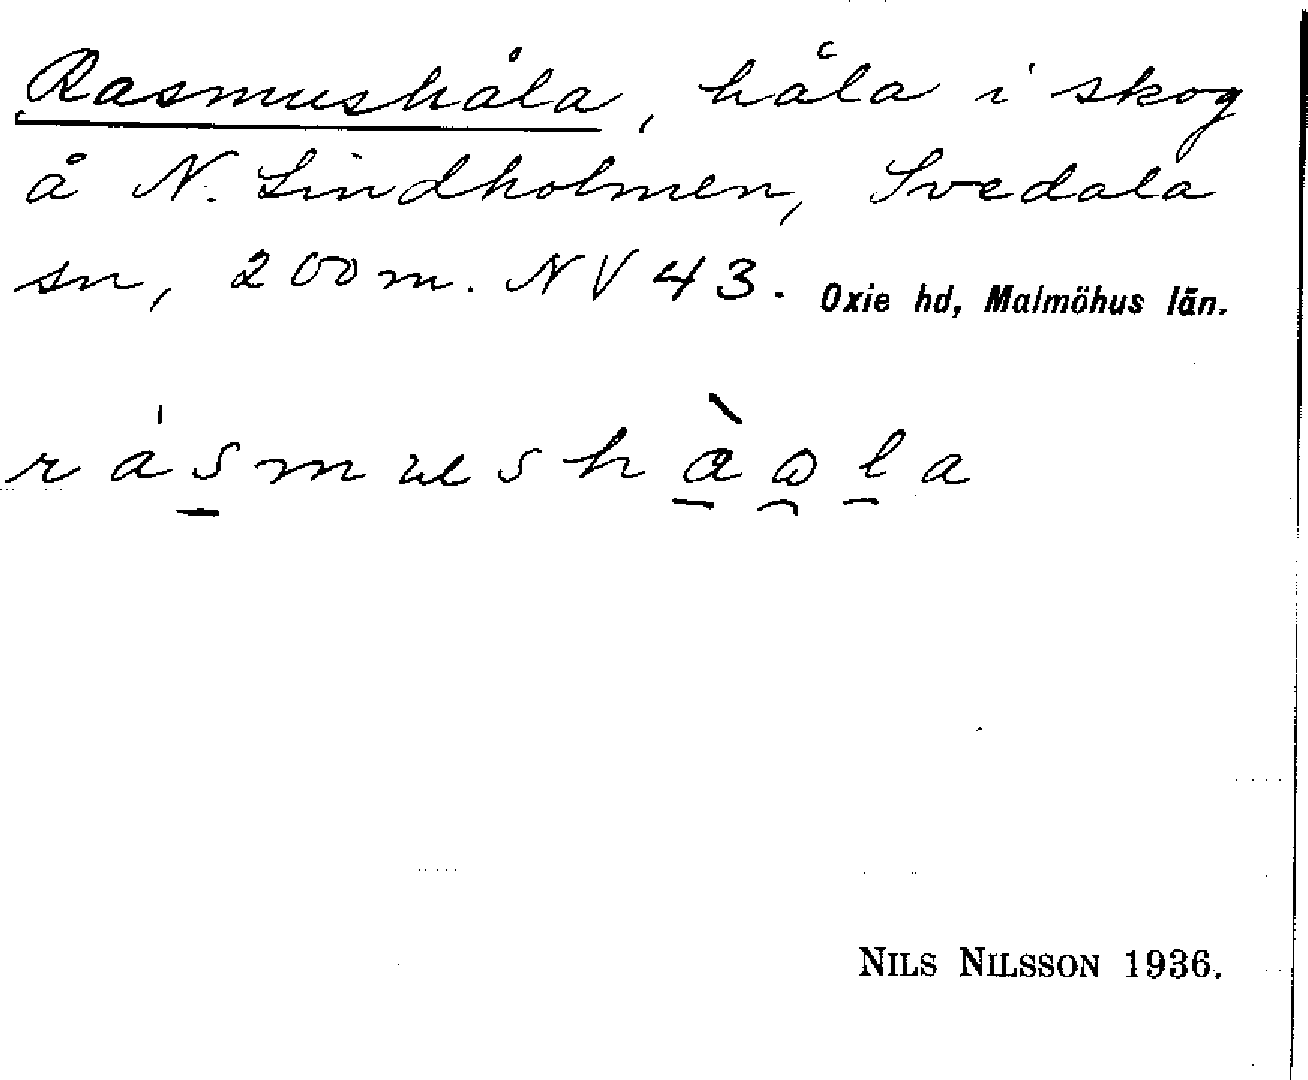 Rasmushåla, håla i skog
å N. Lindholmen, Svedala
sn, 200 m. NV 43. Oxie hd, Malmöhus län.
rásmushàola
NILS NILSSON 1936.